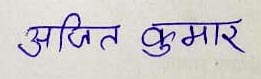 अजित कुमार